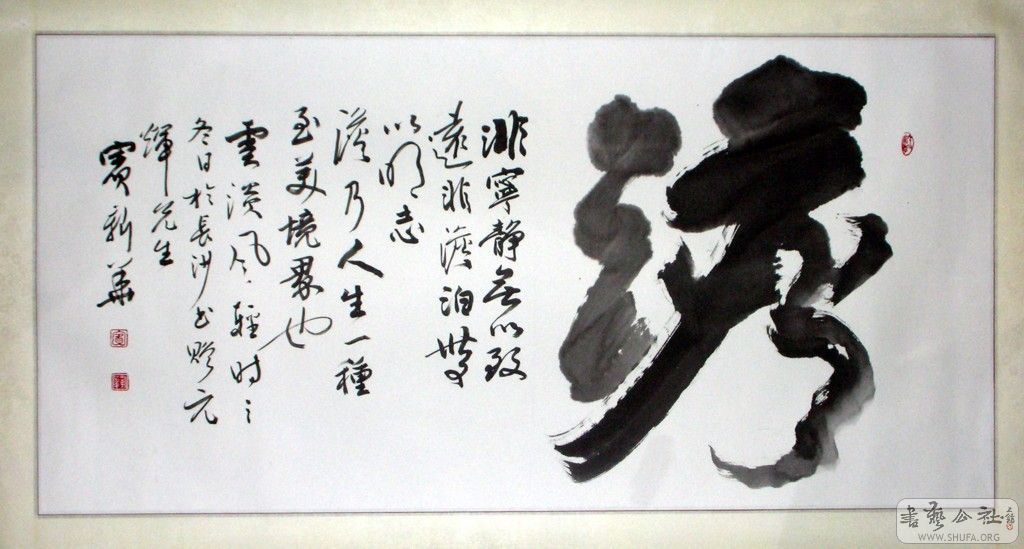 淡
非寧靜無以致
遠非澹泊無
以明志
澹乃人生一種
至美境界也
雲淡风輕时之
冬日於長沙书贈元
煇先生
賓新華
書藝公社
WWW.SHUFA.ORG